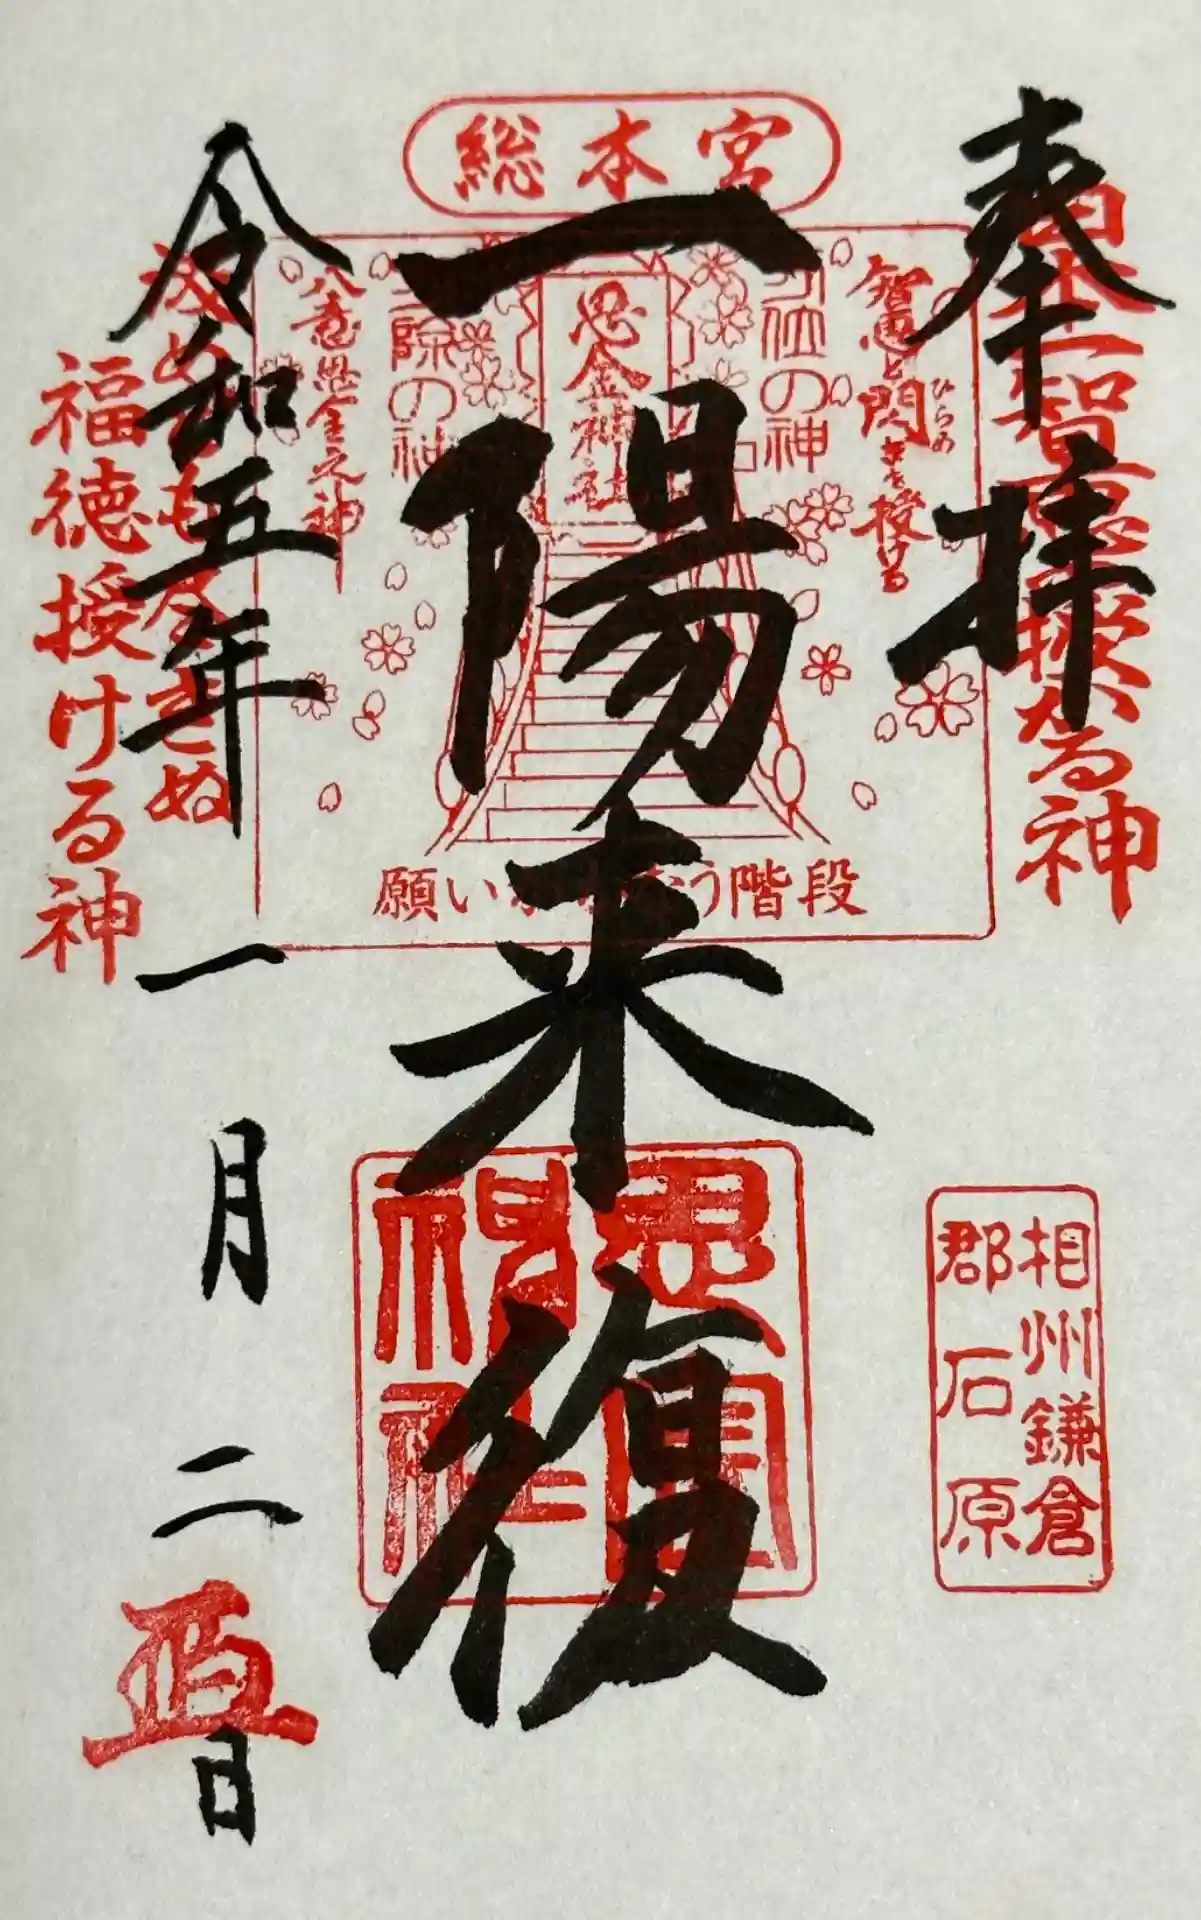 総本宮
奉拝
日本一智恵授かる神
智恵と閃きを授ける
ひらめ
の神
思金神社
除の神
八意思金之神
一陽来復
願い かなう階段
令和五年一月二日
福徳授ける神
相州鎌倉
郡石原
思金
神社